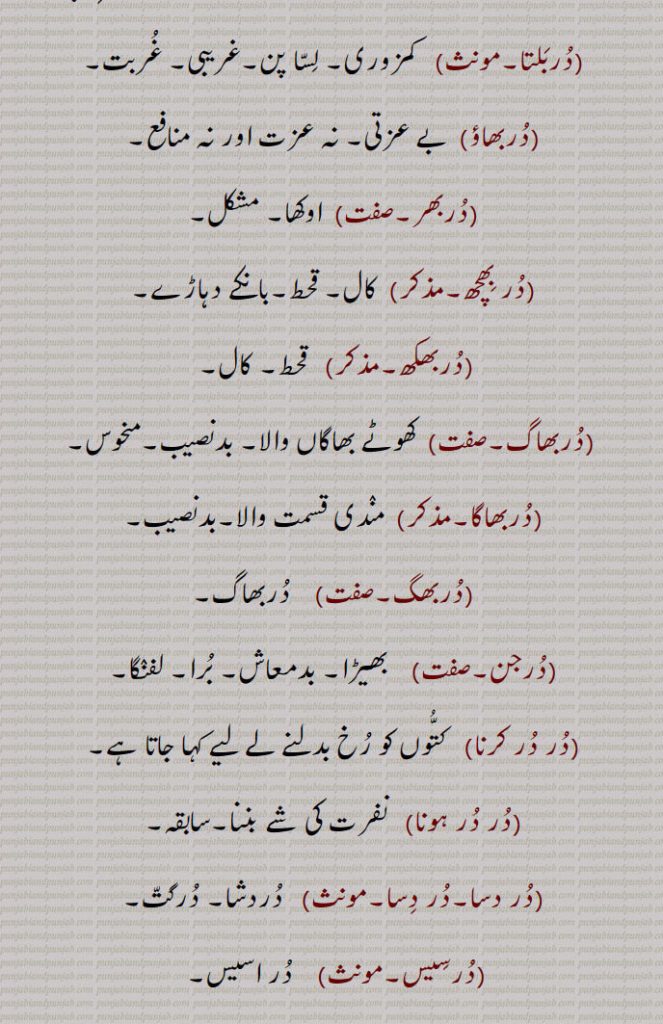 (دُربَلتا۔مونث) کمزوری۔ لِسّا پن۔غریبی۔ غُربت۔
(دُربھاؤ) بے عزتی۔ نہ عزت اور نہ منافع۔
(دُربھر۔صفت) اوکھا۔ مشکل۔
(دُر بِھچھ۔مذکر) کال۔ قحط۔بانکے دہاڑے۔
(دُربھکھ۔مذکر) قحط۔ کال۔
(دُربھاگ۔صفت) کھوٹے بھاگاں والا۔ بدنصیب۔منحوس۔
(دُربھاگا۔مذکر) منْدی قسمت والا۔بدنصیب۔
(دُربھگ۔صفت) دُربھاگ۔
(دُرجن۔صفت) بھیڑا۔ بدمعاش۔ بُرا۔ لفنْگا۔
(دُر دُر کرنا) کتُّوں کو رُخ بدلنے لے لیے کہا جاتا ہے۔
(دُر دُر ہونا) نفرت کی شے بننا۔سابقہ۔
(دُر دسا۔دُر دِسا۔مونث) دُردشا۔ دُرگتّ۔
(دُرسِیس۔مونث) دُر اسیس۔